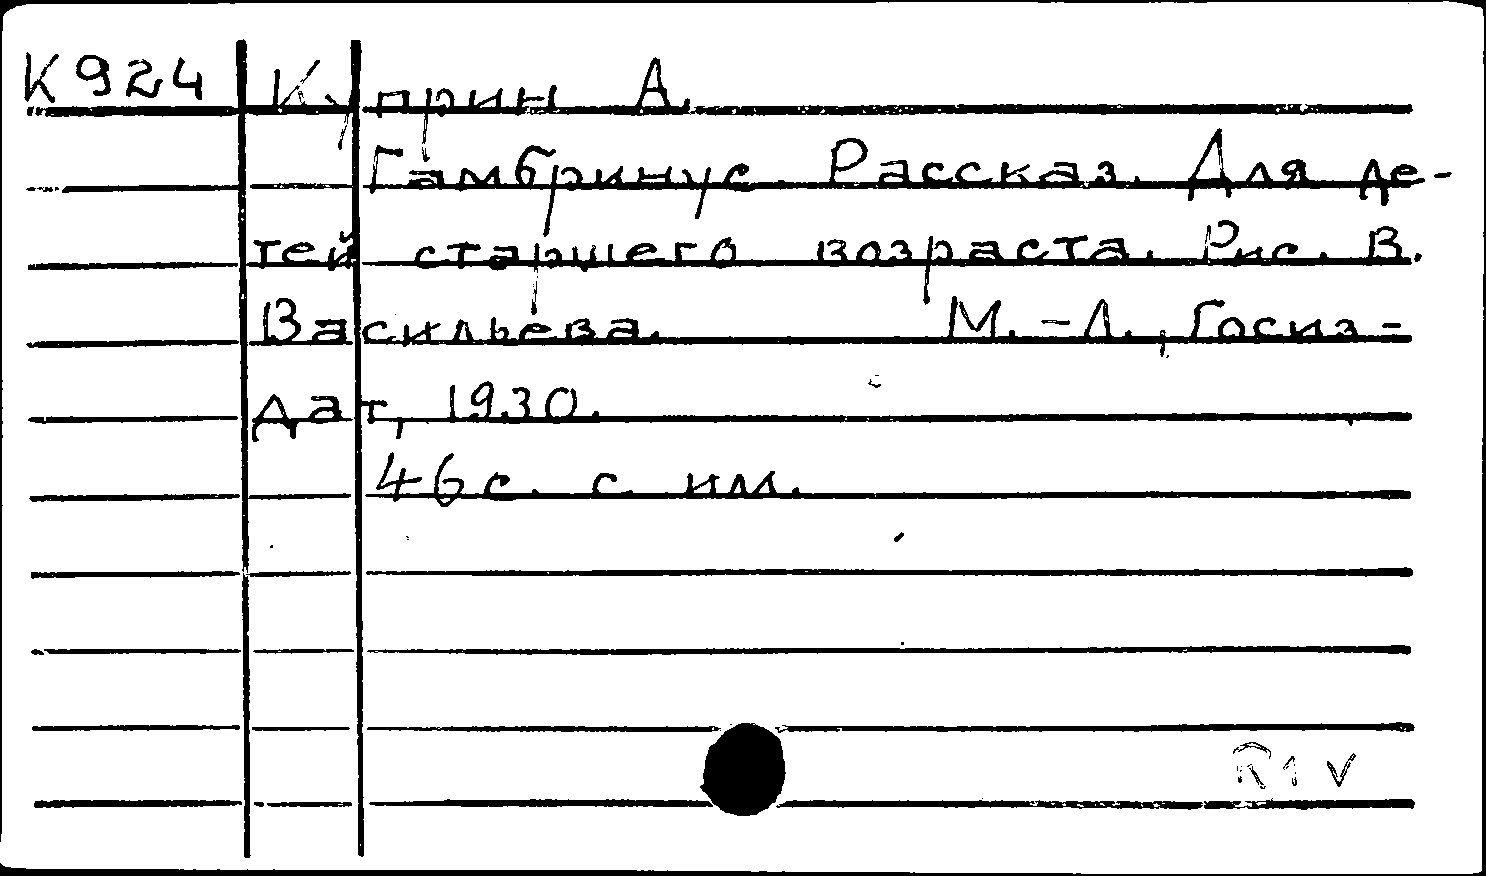 К924 Куприн А.
Гамбринус. Рассказ. Для де-
тей старшего возраста. Рис. В.
Васильева. М.-Л., Госиз-
дат, 1930.
46с. с илл.
R1V